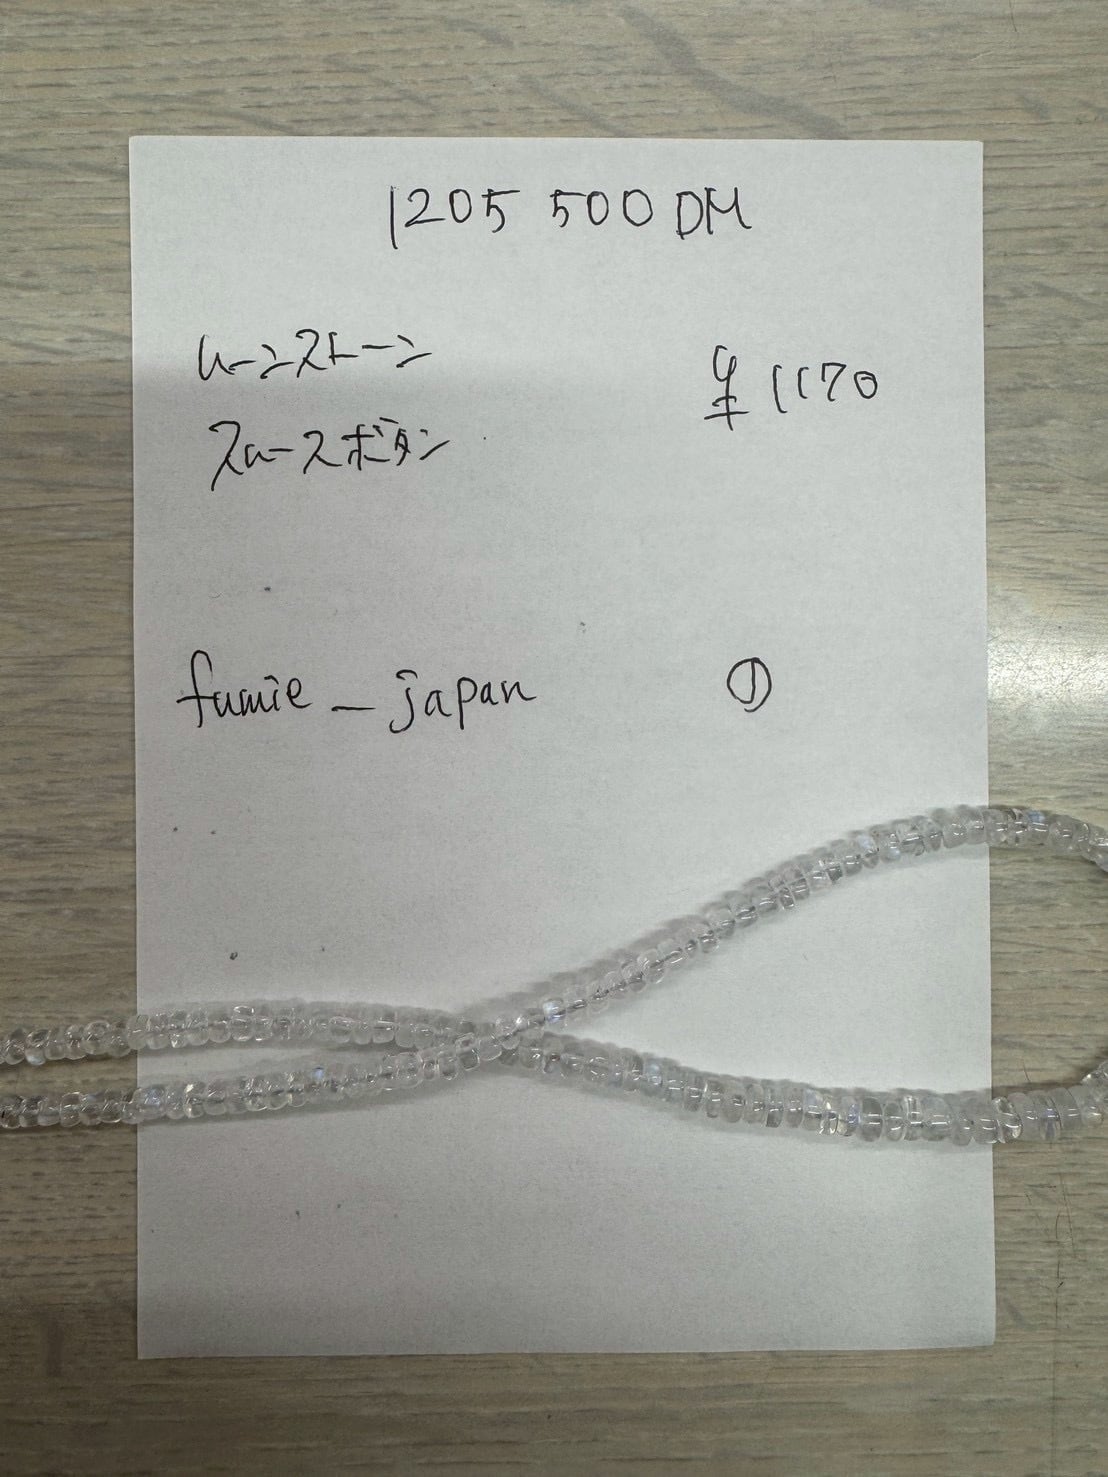 1205 500 DM
ムーンストーン
¥1170
スムースボタン
fumie_japan ①